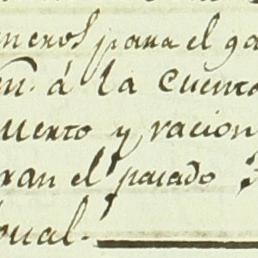 meros para el ga
en. á la Cuenta
uerto y racion
ran el pasado
oual.